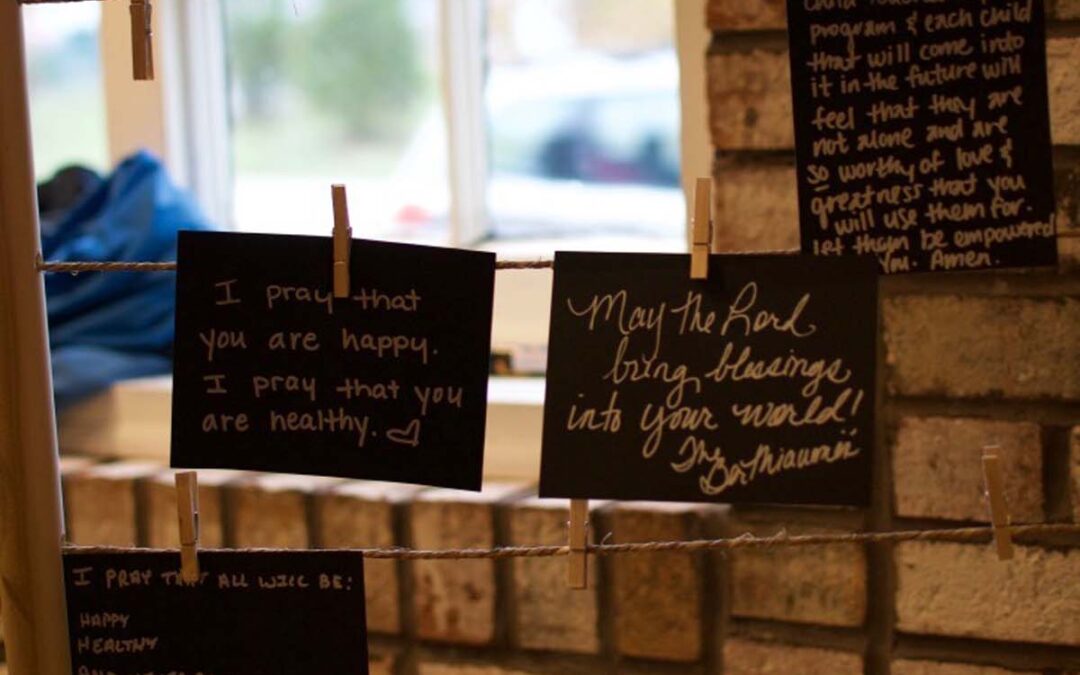 program & each child
that will come into
it in the future will
feel that they are
not alone and are
so worthy of love &
greatness that you
will use them for.
Let them be empowered
you. Amen.
I pray that
you are happy.
I pray that you
are healthy.
May the Lord
bring blessings
into your world!
The
I PRAY THAT ALL WILL BE:
HAPPY
HEALTHY